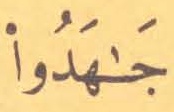 جَـٰهَدُوا۟